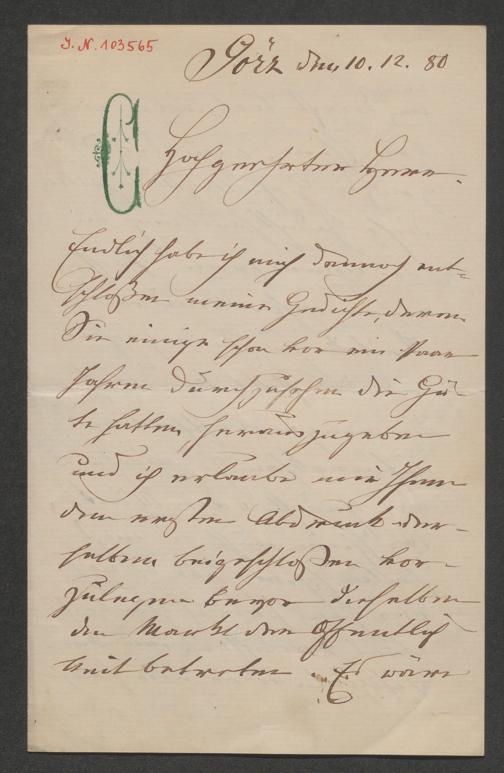 J. N. 103565
Görz den 10. 12. 80
C
Hochgeehrter Herr.
Endlich habe ich mich dennoch ent-
schloßen meine Gedichte, deren
Sie einige schon vor ein Paar
Jahren durchzusehen die Gü-
te hatten, herauszugeben
und ich erlaube mir Ihnen
den ersten Abdruck der-
selben beigeschloßen vor-
zulegen bevor dieselben
den Markt der Öffentlich
keit betreten. Es wäre